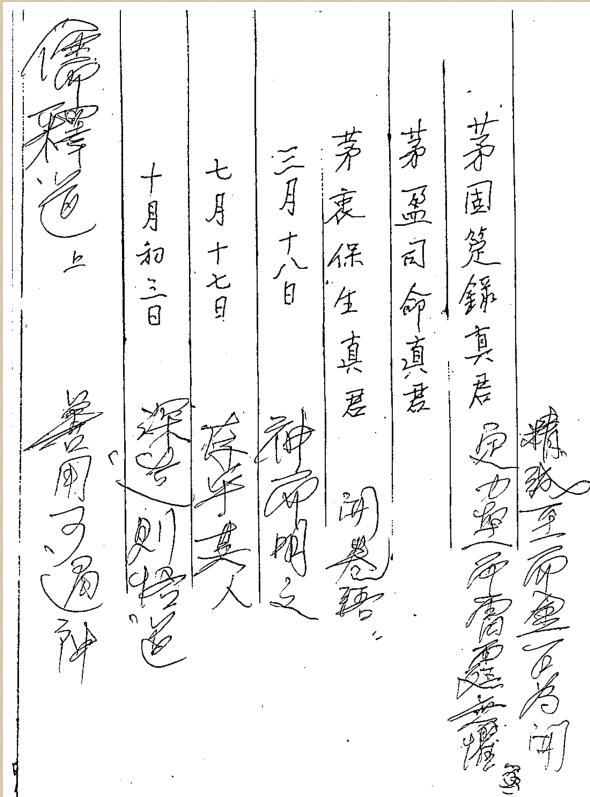 精誠至而金石為開
茅固錄真君 定力而雷霆無懼
茅盈司命真君
茅衷保生真君 開卷語
三月十八日 神而明之
七月十七日 存乎其人
十月初三日 深造則悟道
儒釋道上 善用可通神